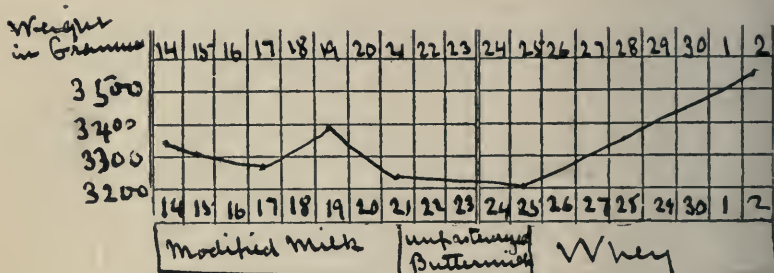 Weight
in Grammes
14 15 16 17 18 19 20 21 22 23 24 25 26 27 28 29 30 1 2
3500
3400
3300
3200
14 15 16 17 18 19 20 21 22 23 24 25 26 27 25 29 30 1 2
Modified Milk
Buttermilk
Whey